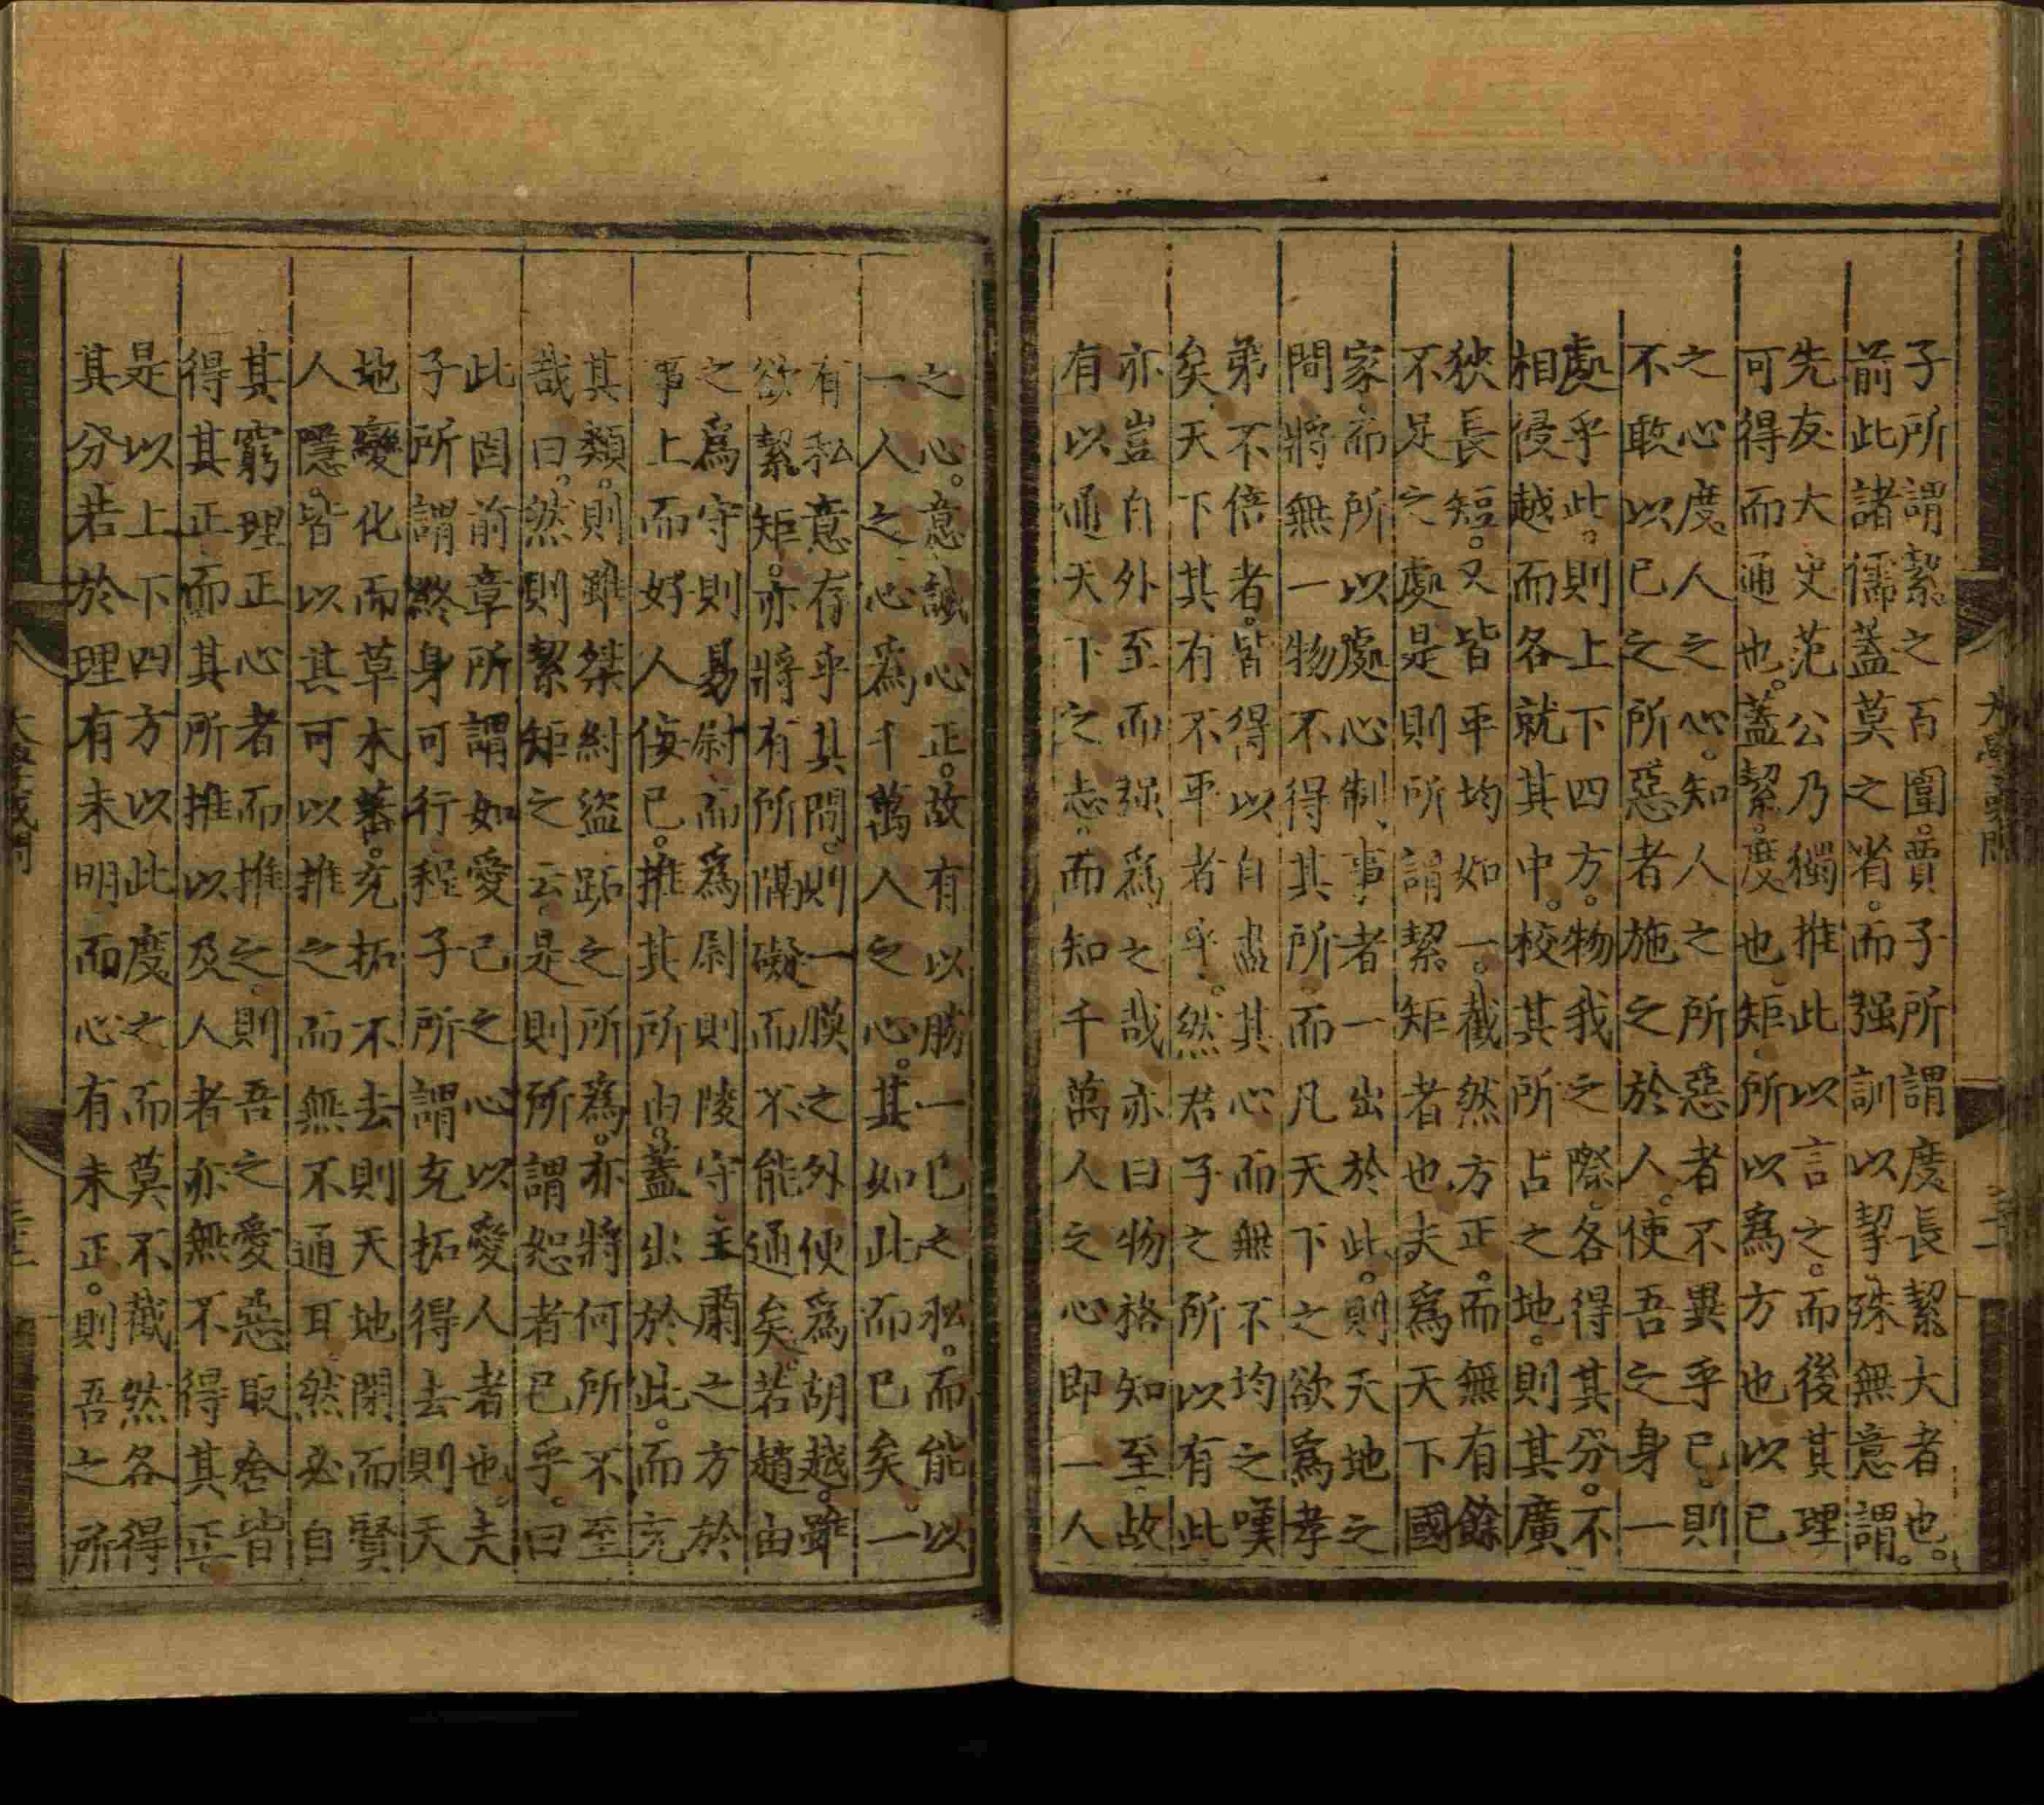 子所謂絜之百圍。賈子所謂度長絜大者也。
前此諸儒蓋莫之省。而强訓以挈殊無意謂。
先友大史范公。乃獨推此以言之。而後其理
可得而通也。蓋絜。度也。矩。所以爲方也以已
之心度人之心。知人之所惡者不異乎已。則
不敢以已之所惡者施之於人。使吾之身一
處乎此。則上下四方。物我之際。各得其分。不
相侵越。而各就其中。校其所占之地。則其廣
狹長短。又皆平均如一。截然方正。而無有餘
不足之處是則所謂絜矩者也夫爲天下國
家。而所以處心制事者一出於此。則天地之
間將無一物不得其所。而凡天下之欲爲孝
弟不倍者。皆得以自盡其心而無不均之嘆
矣。天下其有不平者乎。然君子之所以有此
亦豈自外至而强爲之哉亦曰物格知至。故
有以通天下之志。而知千萬人之心即一人
之心。意誠心正。故有以勝一已之私。而能以
一人之心爲千萬人之心。其如此而已矣。一
有私意存乎其間。則一膜之外便爲胡越。雖
欲絜矩。亦將有所隔礙而不能通矣。若趙由
之爲守則易尉。而爲尉則陵守。王肅之方於
事上而好人佞已。推其所由。蓋出於此。而充
其類。則雖桀紂盜跖之所爲。亦將何所不至
哉曰。然則絜矩之云。是則所謂恕者已乎。曰
此固前章所謂如愛己之心以愛人者也。夫
子所謂終身可行。程子所謂充拓得去則天
地變化而草木蕃。充拓不去則天地閉而賢
人隱。皆以其可以推之而無不通耳。然必自
其窮理正心者而推之。則吾之愛惡取舍皆
得其正。而其所推以及人者亦無不得其正
是以上下四方以此度之而莫不截然各得
其分若於理有未明而心有未正。則吾之所